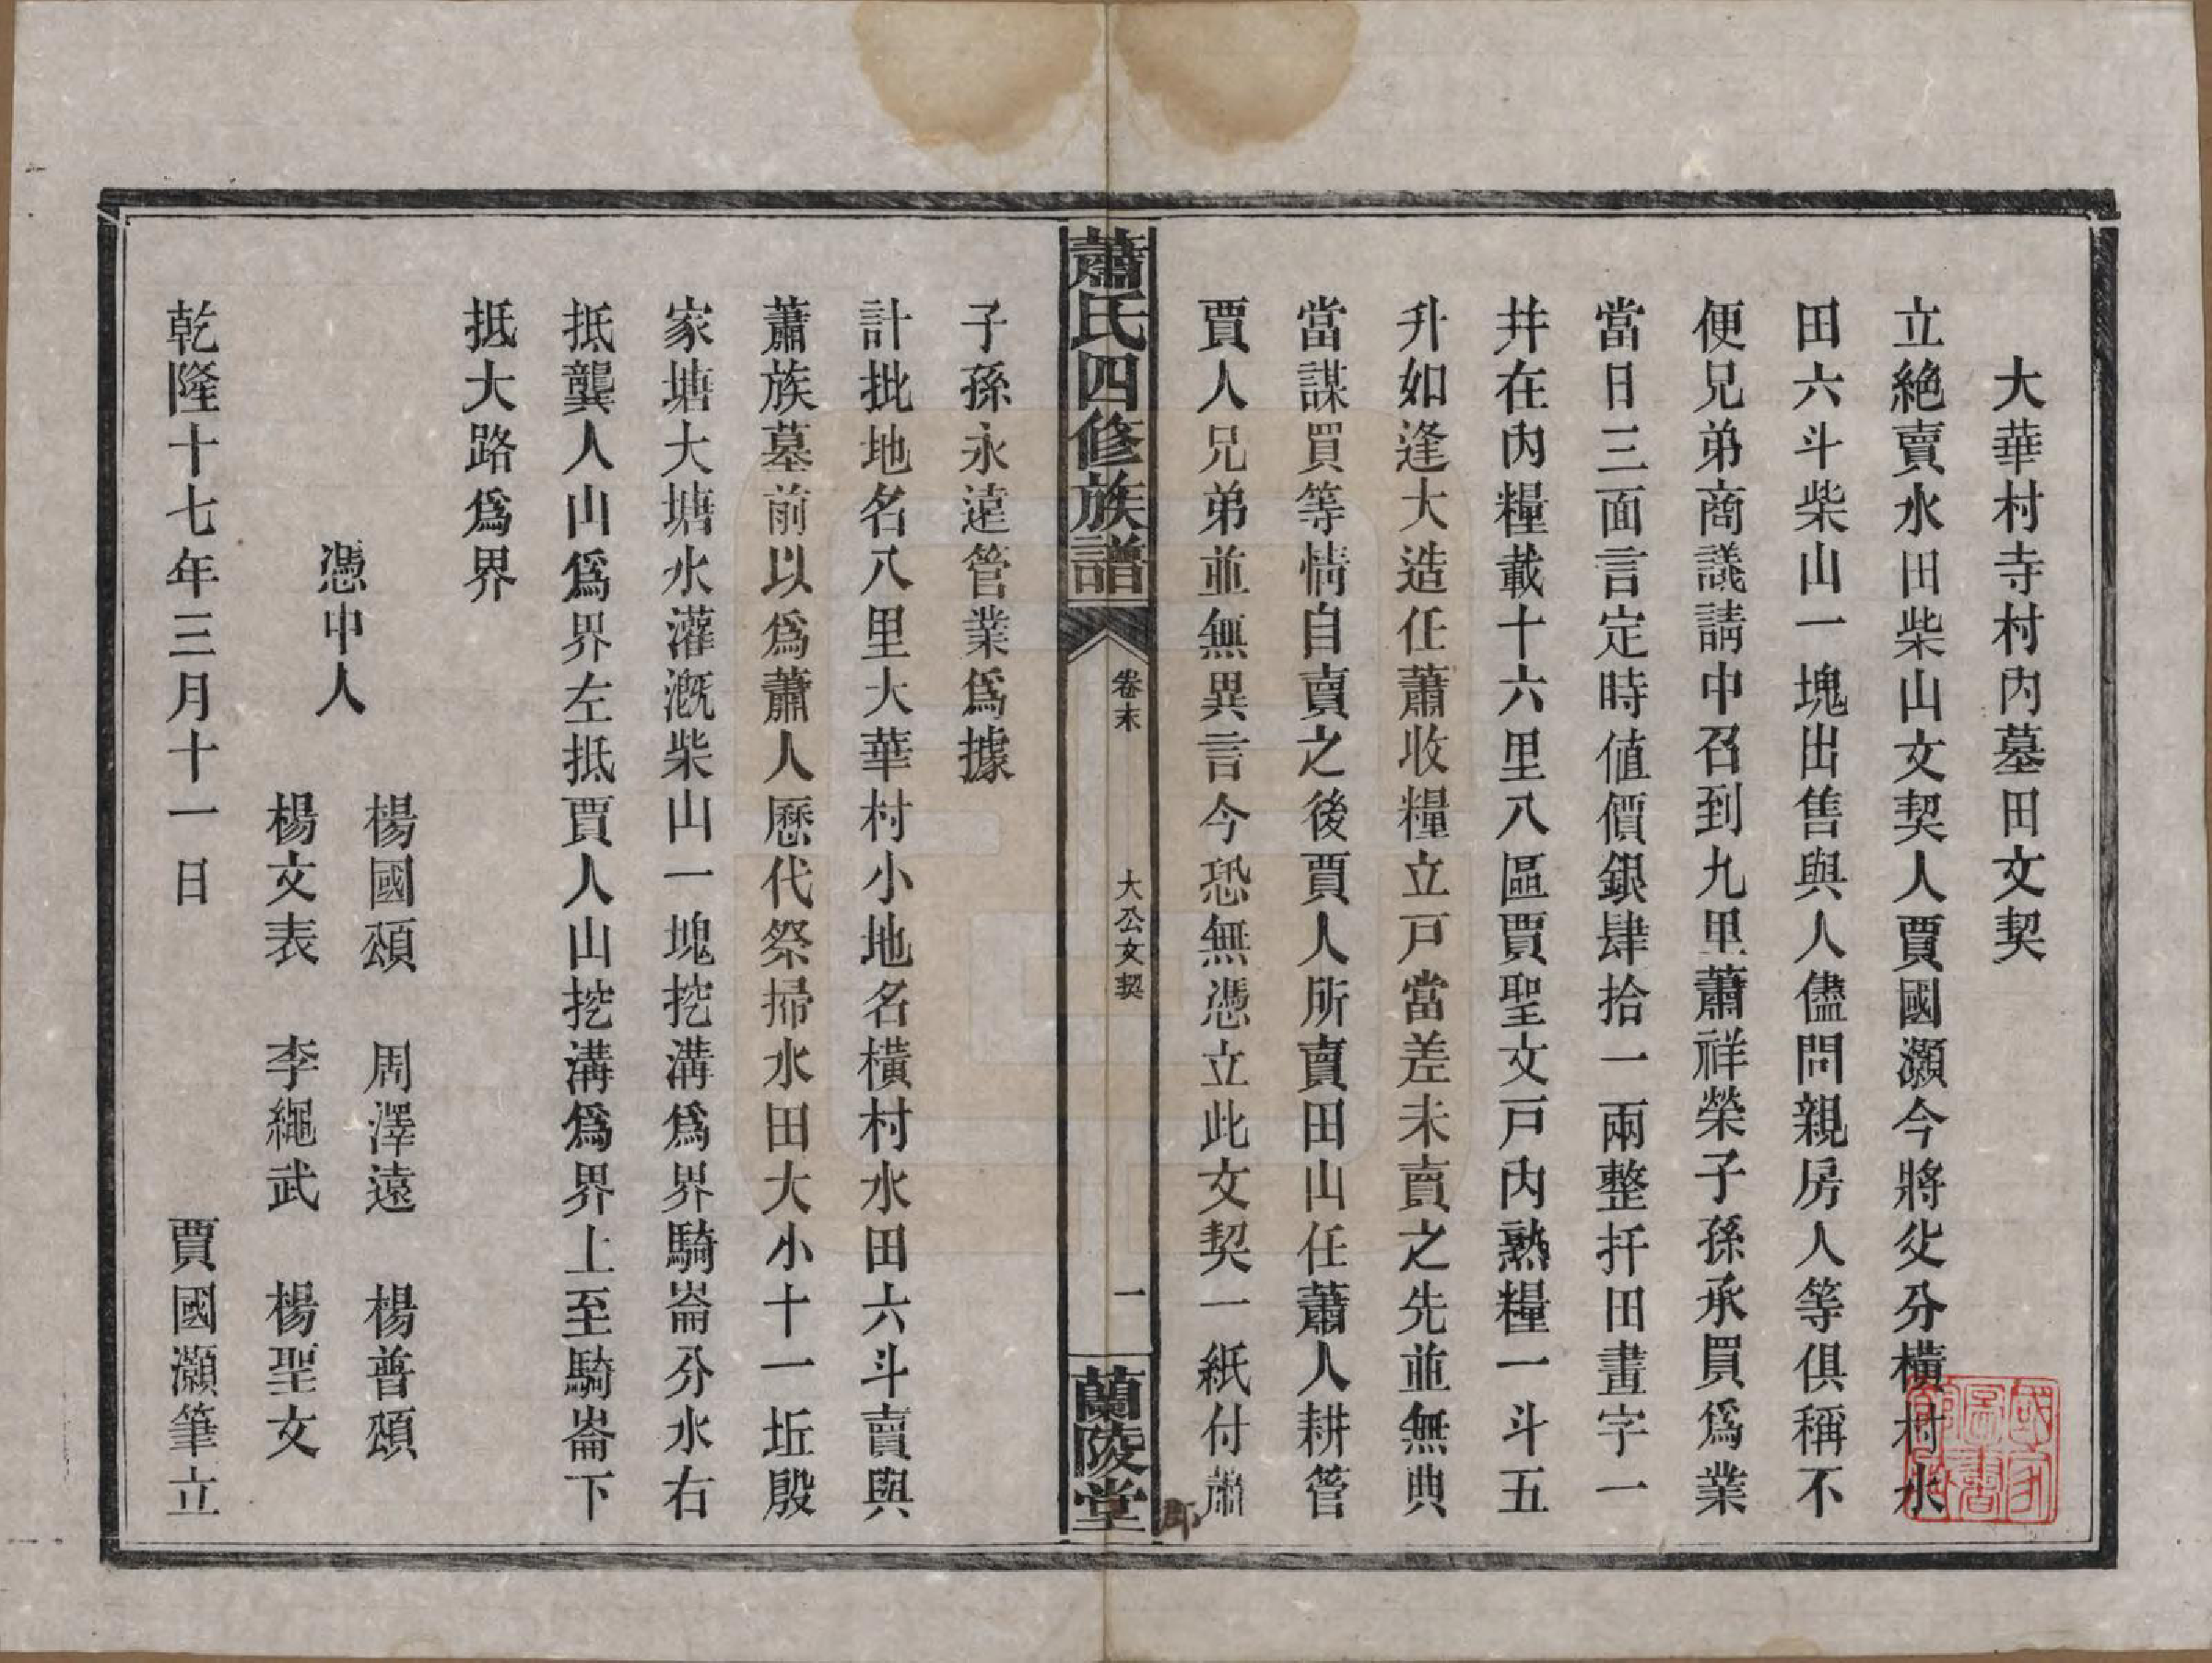 大華村寺村內墓田文契
立絶賣水田柴山文契人賈國灝今將父分橫村水
田六斗柴山一塊出售與人儘問親房人等俱稱不
便兄弟商議請中召到九里蕭祥榮子孫承買爲業
當日三面言定時値價銀肆拾一兩整扦田畫字一
并在內糧載十六里八區賈聖文戸內熟糧一斗五
升如逢大造任蕭收糧立戸當差未賣之先並無典
當謀買等情自賣之後賈人所賣田山任蕭人耕管
賈人兄弟並無異言今恐無憑立此文契一紙付蕭
蕭氏四修族譜
卷末
大公文契
一
蘭陵堂
子孫永遠管業爲據
計批地名八里大華村小地名橫村水田六斗賣與
蕭族墓前以爲蕭人歷代祭掃水田大小十一坵殷
家塘大塘水灌溉柴山一塊挖溝爲界騎崙分水右
抵龔人山爲界左抵賈人山挖溝爲界上至騎崙下
抵大路爲界
楊國頌　周澤遠　楊普頌
憑中人
楊文表　李繩武　楊聖文
乾隆十七年三月十一日　賈國灝筆立